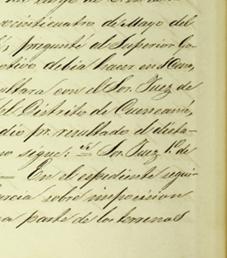 veinticuatro de Mayo del
pregunté al Superior Go-
debia hacer en
ultara con el Sor. Juez de
el Distrito de Cuernava,
dio pr. resultado el dicta-
o sigue: Sor. Juez 1o. de
— En el espediente segui-
encia sobre imposicion
a parte de los terrenos